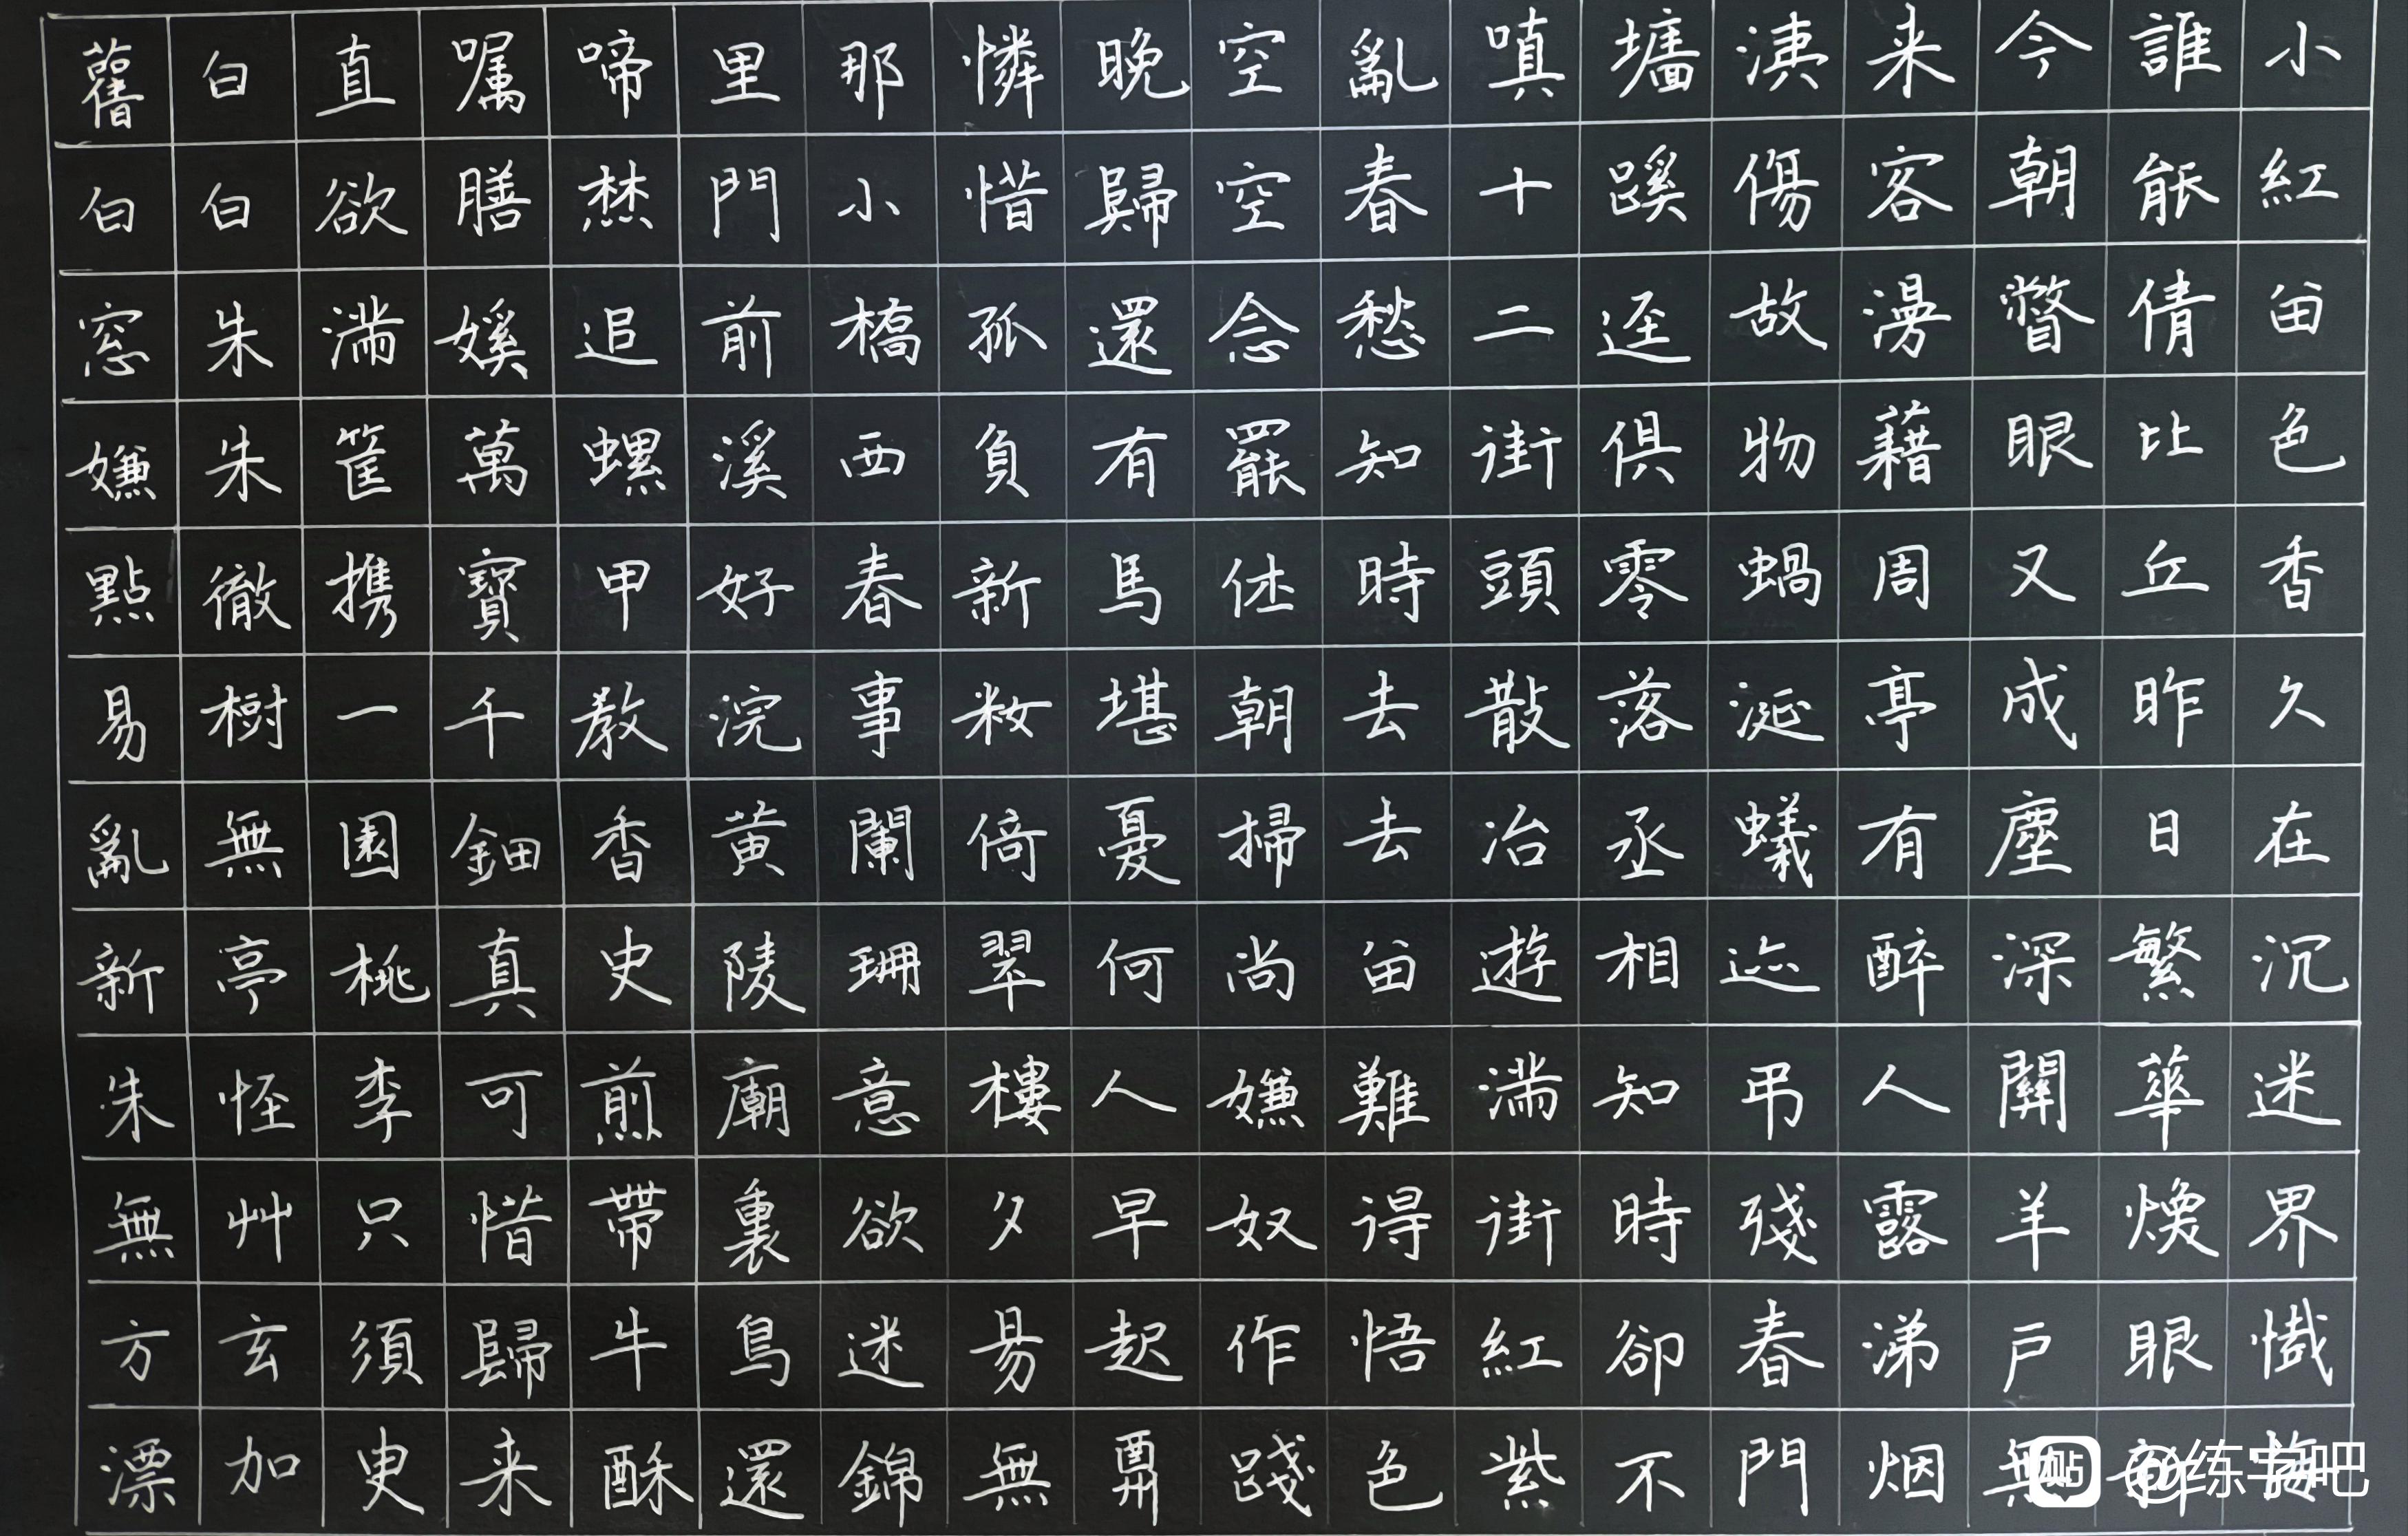 小紅畄色香久在沉迷界懺
誰能倩比丘昨日繁華煥眼新
今朝瞥眼又成塵深闗羊户無
来客漫藉周亭有醉人露涕烟
洟傷故物蝸涎蟻迹弔殘春門
墻蹊逕俱零落丞相知時卻不
嗔十二街頭散冶遊滿街紅紫
亂春愁知時去去畄難得悟色
空空念罷休朝掃尚嫌奴作踐
晚歸還有馬堪憂何人早起
憐惜孤負新妝倚翠樓夕易無
那小橋西春事闌珊意欲迷錦
里門前溪好浣黄陵廟裏鳥還
啼焚追螺甲教香史煎帶牛酥
嘱膳媛萬寶千鈿真可惜歸来
直欲滿筐携一園桃李只須更
白白朱朱徹樹無亭怪艸玄加
舊白窓嫌點易亂新朱無方漂
@练字吧